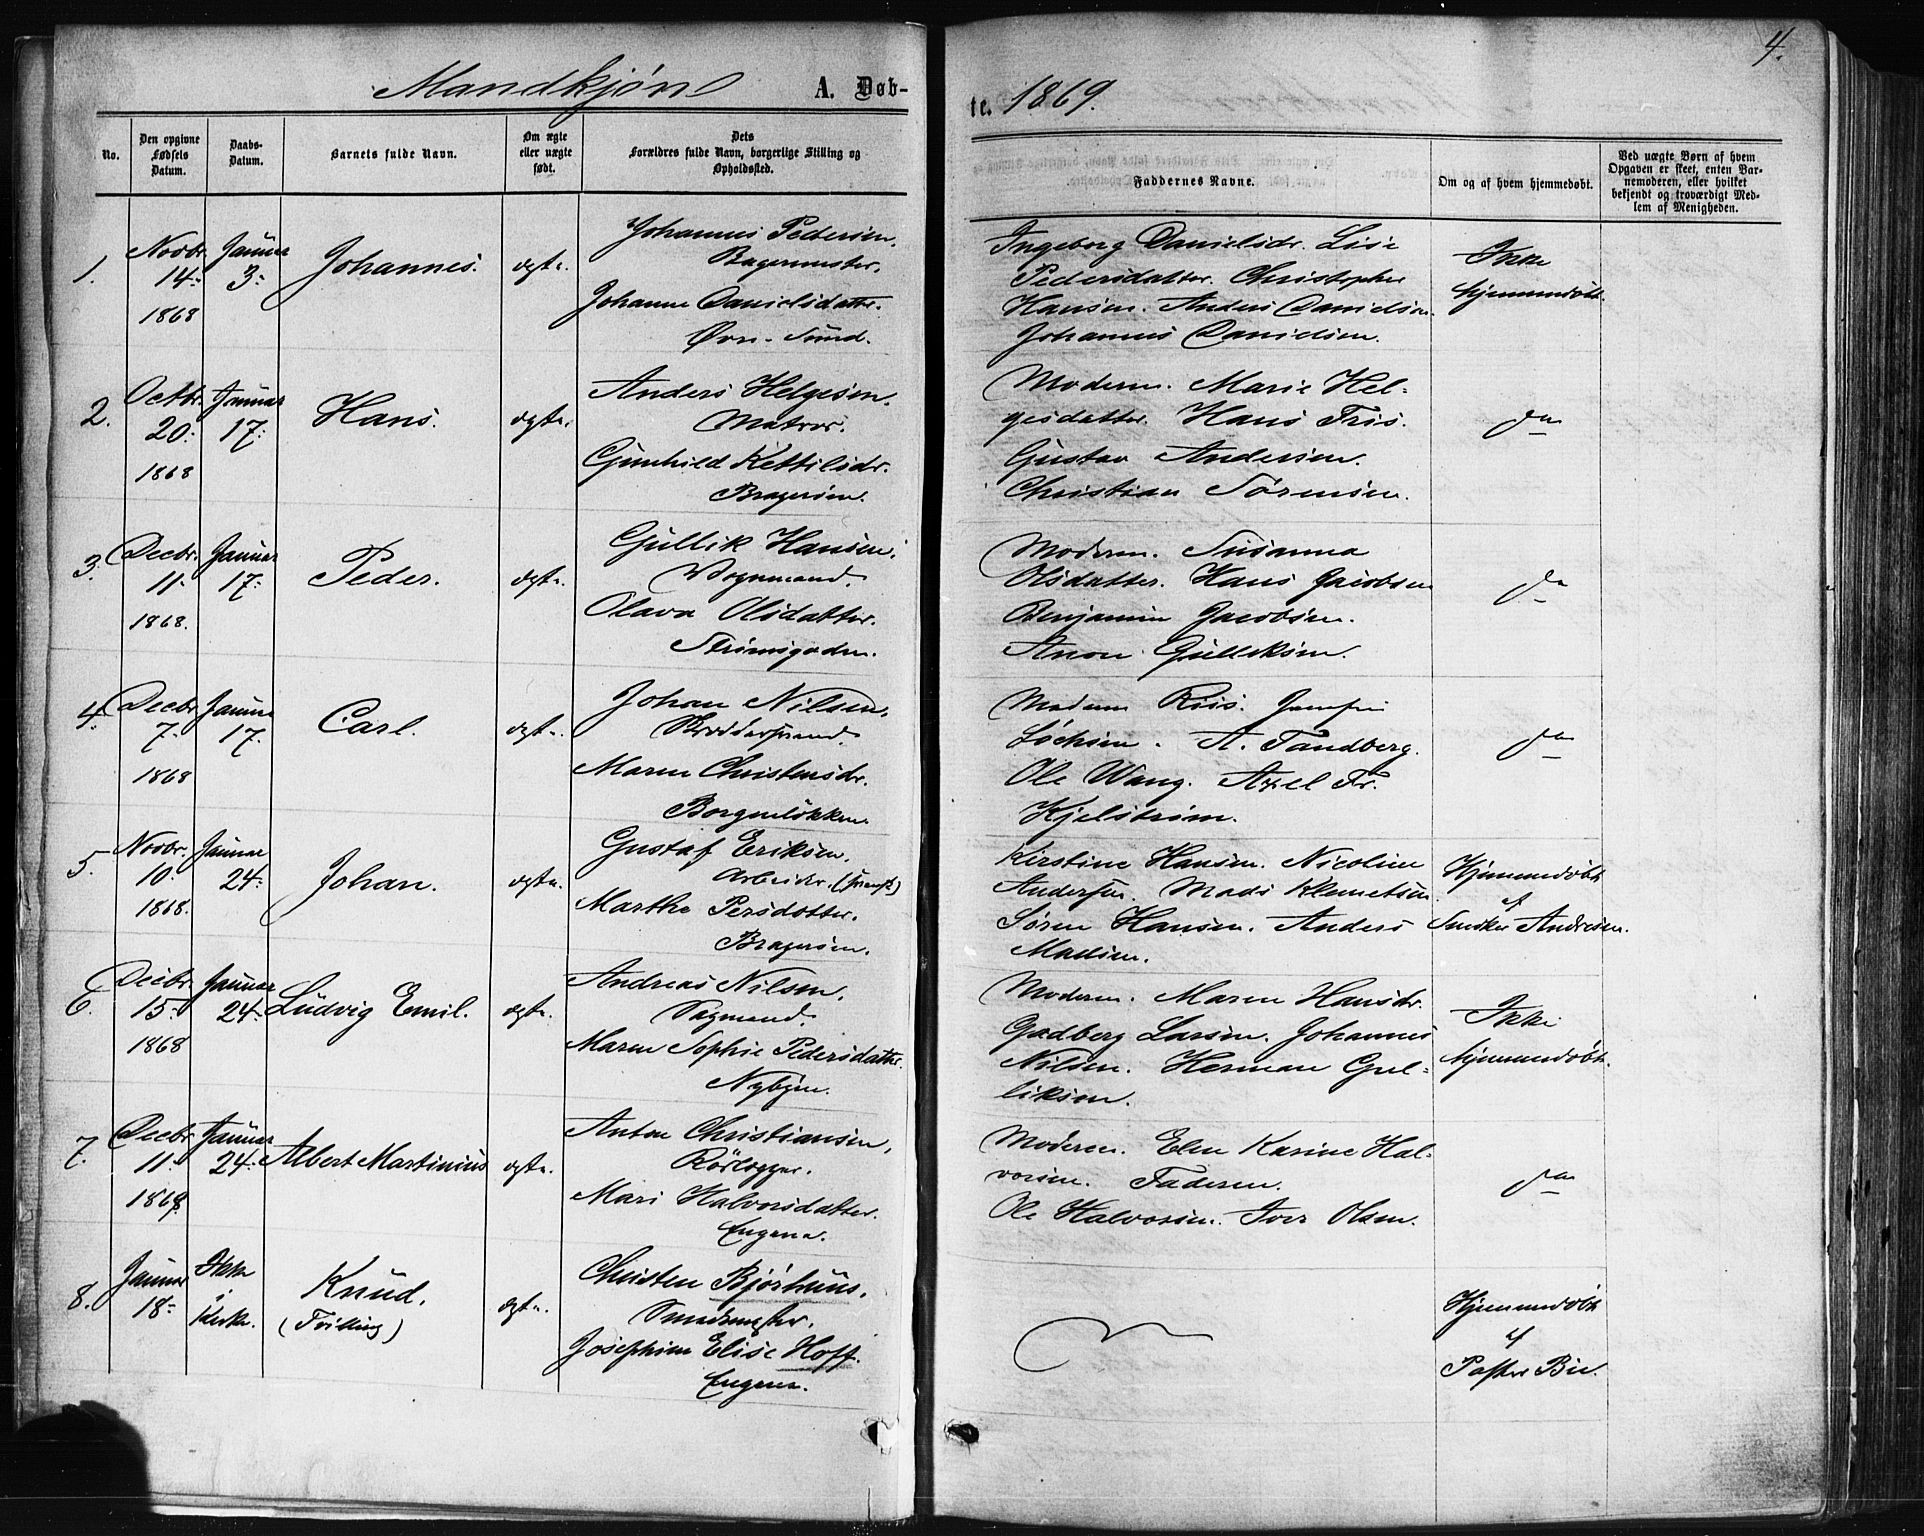 4.
Mandkjøn A. Døb-
te. 1869.
No.
Den opgivne
Fødsels
Datum.
Daabs-
Datum.
Barnets fulde Navn.
Om ægte
eller uægte
født.
Dets
Forældres fulde Navn, borgerlige Stilling og
Opholdssted.
Faddernes Navne.
Om og af hvem hjemmedøbt.
Ved uægte Børn af hvem
Opgaven er skeet, enten Bar-
nemoderen, eller hvilket
bekjendt og troværdigt Med-
lem af Menigheden.
1.
Novbr.
14.
1868
Januar
3.
Johannes.
ægte.
Johannes Pedersen.
Bagermester.
Johanne Danielsdatter.
Øvre-Sund.
Ingeborg Danielsdr. Lise
Pedersdatter. Christopher
Hansen. Anders Danielsen.
Johannes Danielsen.
Ikke
hjemmedøbt.
2.
Octbr.
20.
1868
Januar
17.
Hans.
ægte.
Anders Helgesen.
Matros.
Gunhild Kettilsdr.
Bragerøen.
Moderen. Marie Hel-
gesdatter. Hans Friis.
Gustav Andersen.
Christian Sørensen.
do
3.
Decbr.
11.
1868.
Januar
17.
Peder.
ægte.
Gullik Hansen.
Vognmand.
Olava Olsdatter.
Strømsgaden.
Moderen. Susanna
Olsdatter. Hans Jacobsen
Benjamin Jacobsen.
Anon Gulliksen.
do
4.
Decbr.
7.
1868
Januar
17.
Carl.
ægte.
Johan Nilsen.
Maren Christensdr.
Borgenløkken.
Madam Riis. Jomfru
Løchsen. A. Tandberg.
Ole Wang. Axel Fr.
Kjelstrøm.
do
5.
Novbr.
10.
1868.
Januar
24.
Johan.
ægte.
Gustaf Eriksen.
Arbeider. (svensk)
Marthe Persdatter.
Bragerøen.
Kirstine Hansen. Nicoline
Andersen. Mads Klemetsen.
Søren Hansen. Anders
Madsen.
Hjemmedøbt
af
Snedker Andresen.
6.
Decbr.
15.
1868
Januar
24.
Ludvig Emil.
ægte.
Andreas Nilsen.
Sagmand.
Maren Sophie Pedersdatter.
Nybyen.
Moderen. Maren Hansdr.
Gudberg Larsen. Johannes
Nilsen. Herman Gul-
liksen.
Ikke
hjemmedøbt.
7.
Decbr.
11.
1868.
Januar
24.
Albert Martinius
ægte.
Anton Christiansen,
Rørlægger.
Mari Halvorsdatter.
Engene.
Moderen. Elen Karine Hal-
vorsen. Faderen.
Ole Halvorsen. Iver Olsen.
do
8.
Januar
18.
Ikke
i
Kirke.
Knud.
(Tvilling)
ægte.
Christen Bjørhuus.
Smedmester.
Josephine Elise Hoff.
Engene.
Hjemmedøbt
af
Pastor Bie.